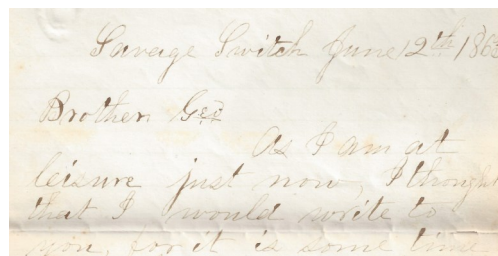 Savage Switch June 12th 1863
Brother Geo
As I am at
leisure just now, I thought
that I would write to
you, for it is some time